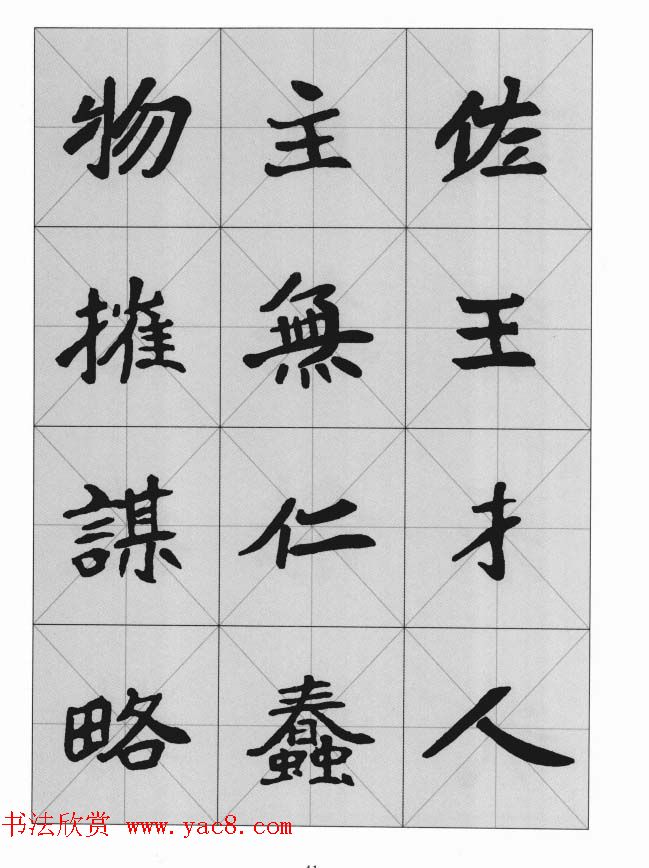 佐王才人
主無仁蠢
物謀略
书法欣赏 www.yac8.com